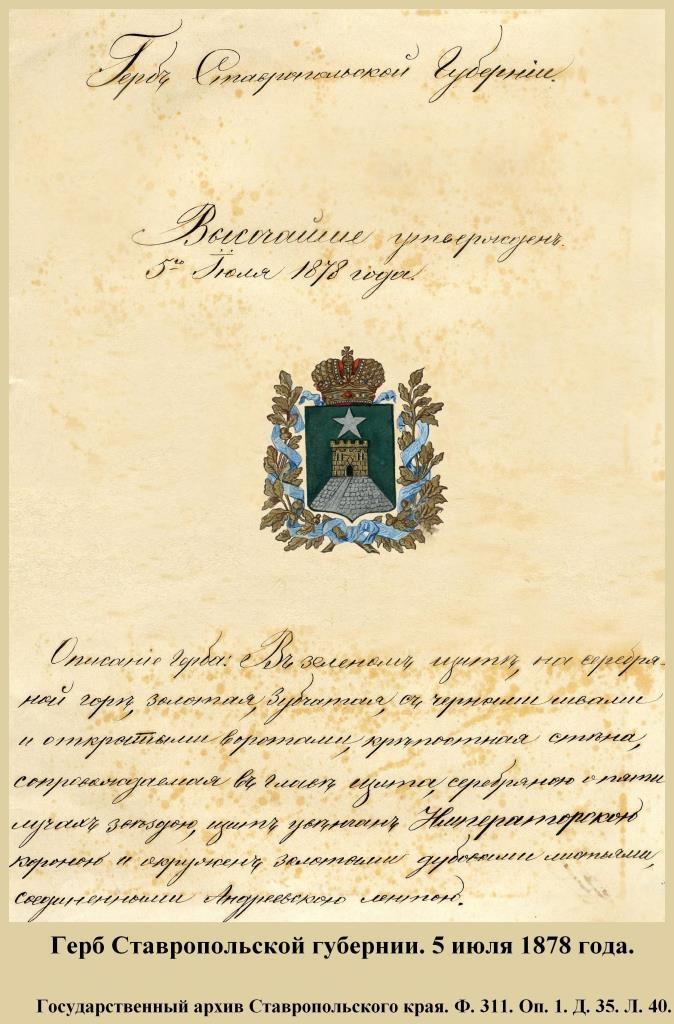 Гербъ Ставропольской Губерніи.
Высочайше утвержденъ.
5го Іюля 1878 года.
Описаніе Герба: Въ зеленомъ щитѣ, на серебря-
ной горѣ, золотая, зубчатая, съ черными швами
и открытыми воротами, крѣпостная стѣна,
сопровождаемая въ главѣ щита, серебряною о пяти
лучахъ звѣздою, щитъ увѣнчанъ Императорскою
короною и окруженъ золотыми дубовыми листьями,
соединенными Андреевскою лентою.
Герб Ставропольской губернии. 5 июля 1878 года.
Государственный архив Ставропольского края. Ф. 311. Оп. 1. Д. 35. Л. 40.